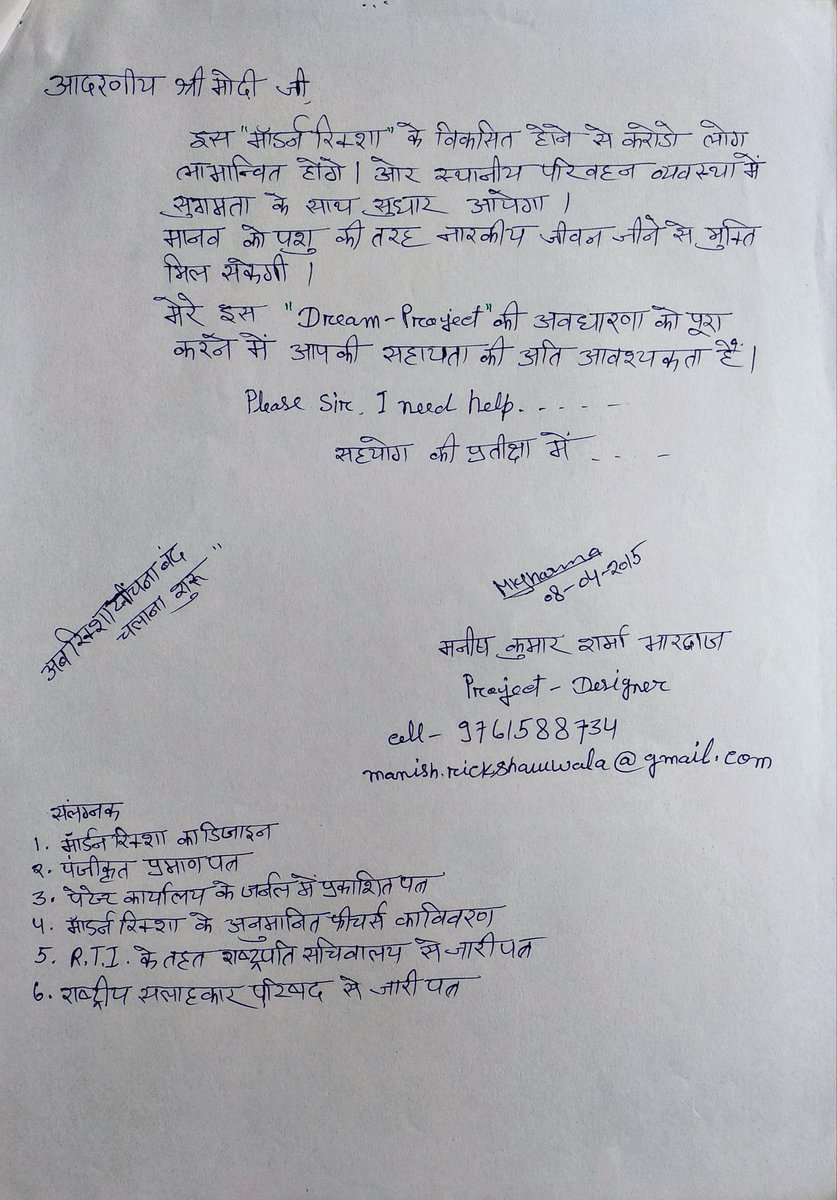 आदरणीय श्री मोदी जी,
इस "मॉडर्न रिक्शा" के विकसित होने से करोडो लोग
लाभान्वित होंगे। ओर स्थानीय परिवहन व्यवस्था में
सुगमता के साथ सुधार आयेगा।
मानव को पशु की तरह नारकीय जीवन जीने से मुक्ति
मिल सकेगी।
मेरे इस "Dream-Proyject" की अवधारणा को पूरा
करने में आपकी सहायता की अति आवश्यकता है।
Please Sir, I need help. - - - -
सहयोग की प्रतीक्षा में - - - -
अब रिक्शा खींचना बंद
चलाना शुरू"
MKSharma
08-04-2015
मनीष कुमार शर्मा भारद्वाज
Proyject - Designer
cell- 9761588734
manish.rickshawwala@gmail.com
संलग्नक
1. मॉर्डन रिक्शा का डिजाइन
२. पंजीकृत प्रमाण पत्र
3. पेटेन्ट कार्यालय के जर्नल में प्रकाशित पत्र
4. मॉडर्न रिक्शा के अनुमानित फीचर्स का विवरण
5. R.T.I. के तहत राष्ट्रपति सचिवालय से जारी पत्र
6. राष्ट्रीय सलाहकार परिषद से जारी पत्र